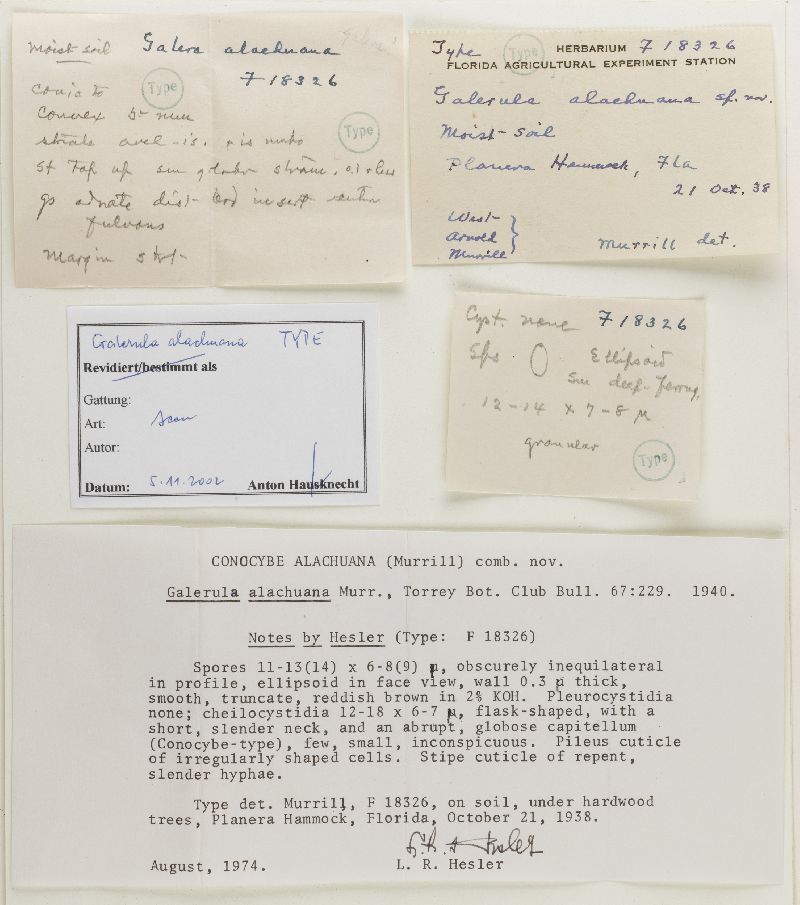 Moist soil Galera alachuana
F 18326
Type
Conic to
Convex
Type
st Tap up sm glabr stram, 0.1 + less
gs adnate dist insert
fulvous
Margin strt
Type Type HERBARIUM F 18326
FLORIDA AGRICULTURAL EXPERIMENT STATION
Galerula alachuana sp. nov.
Moist-soil
Planera Hammock, Fla
21 Oct. 38
West-
Arnold
Murrill
Murrill det.
Galerula alachuana TYPE
Revidiert/bestimmt als
Gattung:
Art:
Autor:
Datum: 5.11.2002 Anton Hausknecht
Cyst. none F 18326
Sps Ellipsoid
sm deep-ferrug,
12-14 x 7-8 µ
granular
Type
CONOCYBE ALACHUANA (Murrill) comb. nov.
Galerula alachuana Murr., Torrey Bot. Club Bull. 67:229. 1940.
Notes by Hesler (Type: F 18326)
Spores 11-13(14) x 6-8(9) µ, obscurely inequilateral
in profile, ellipsoid in face view, wall 0.3 µ thick,
smooth, truncate, reddish brown in 2% KOH. Pleurocystidia
none; cheilocystidia 12-18 x 6-7 µ, flask-shaped, with a
short, slender neck, and an abrupt, globose capitellum
(Conocybe-type), few, small, inconspicuous. Pileus cuticle
of irregularly shaped cells. Stipe cuticle of repent,
slender hyphae.
Type det. Murrill, F 18326, on soil, under hardwood
trees, Planera Hammock, Florida, October 21, 1938.
L. R. Hesler
August, 1974. L. R. Hesler